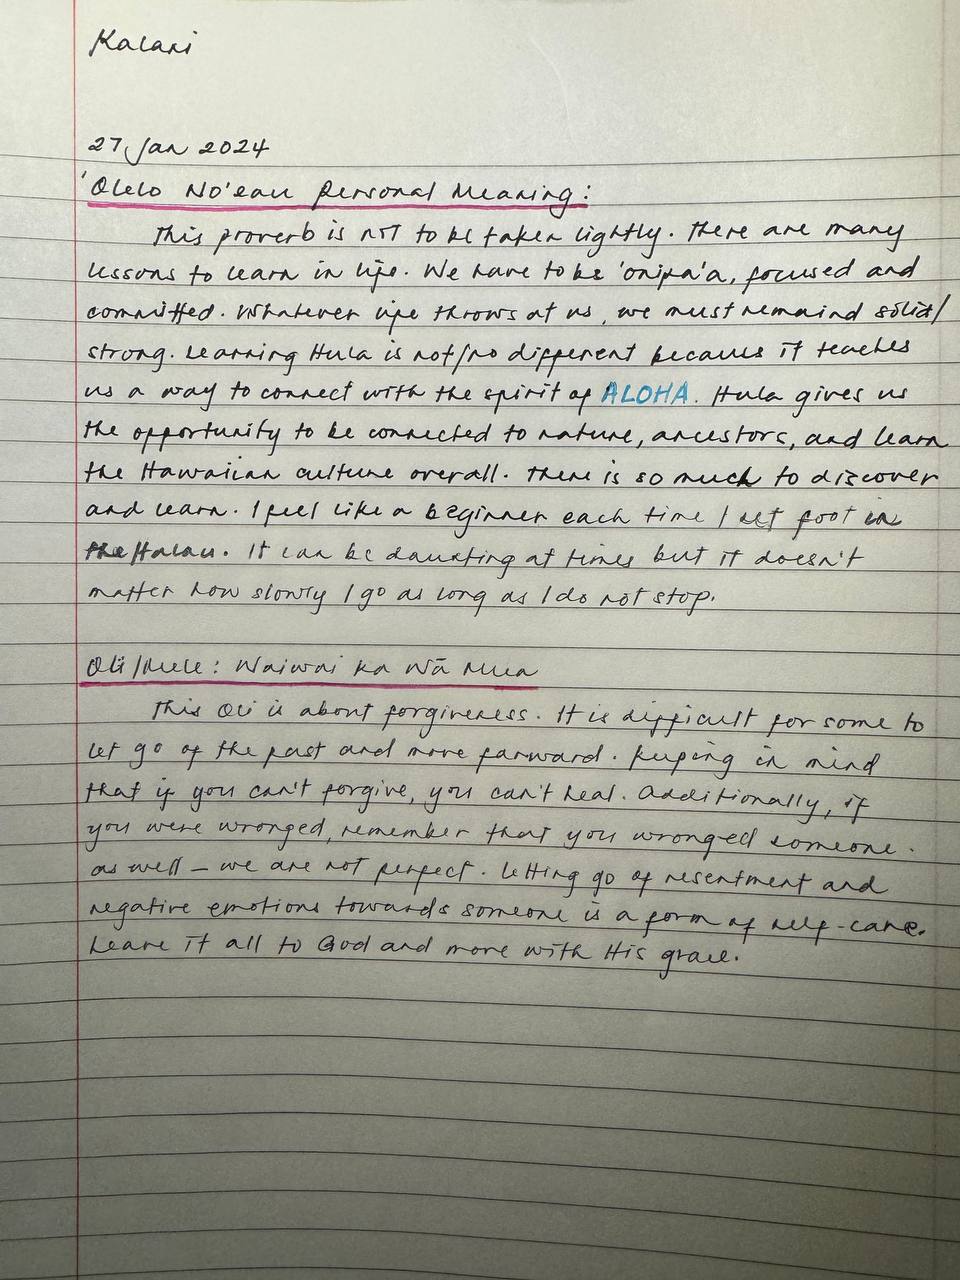 Kalani
27 Jan 2024
'Olelo No'eau Personal Meaning:
This proverb is not to be taken lightly. There are many
lessons to learn in life. We have to be 'onipa'a, focused and
committed. Whatever life throws at us, we must remaind solid/
strong. Learning Hula is not/no different because it teaches
us a way to connect with the spirit of ALOHA. Hula gives us
the opportunity to be connected to nature, ancestors, and learn
the Hawaiian culture overall. There is so much to discover
and learn. I feel like a beginner each time I set foot in
the Halau. It can be daunting at times but it doesn't
matter how slowly I go as long as I do not stop.
Oli/Mele: Waiwai ka Wā Mua
This Oli is about forgiveness. It is difficult for some to
let go of the past and move forward. Keeping in mind
that if you can't forgive, you can't heal. Additionally, if
you were wronged, remember that you wronged someone.
as well – we are not perfect. Letting go of resentment and
negative emotions towards someone is a form of self-care.
Leave it all to God and move with His grace.